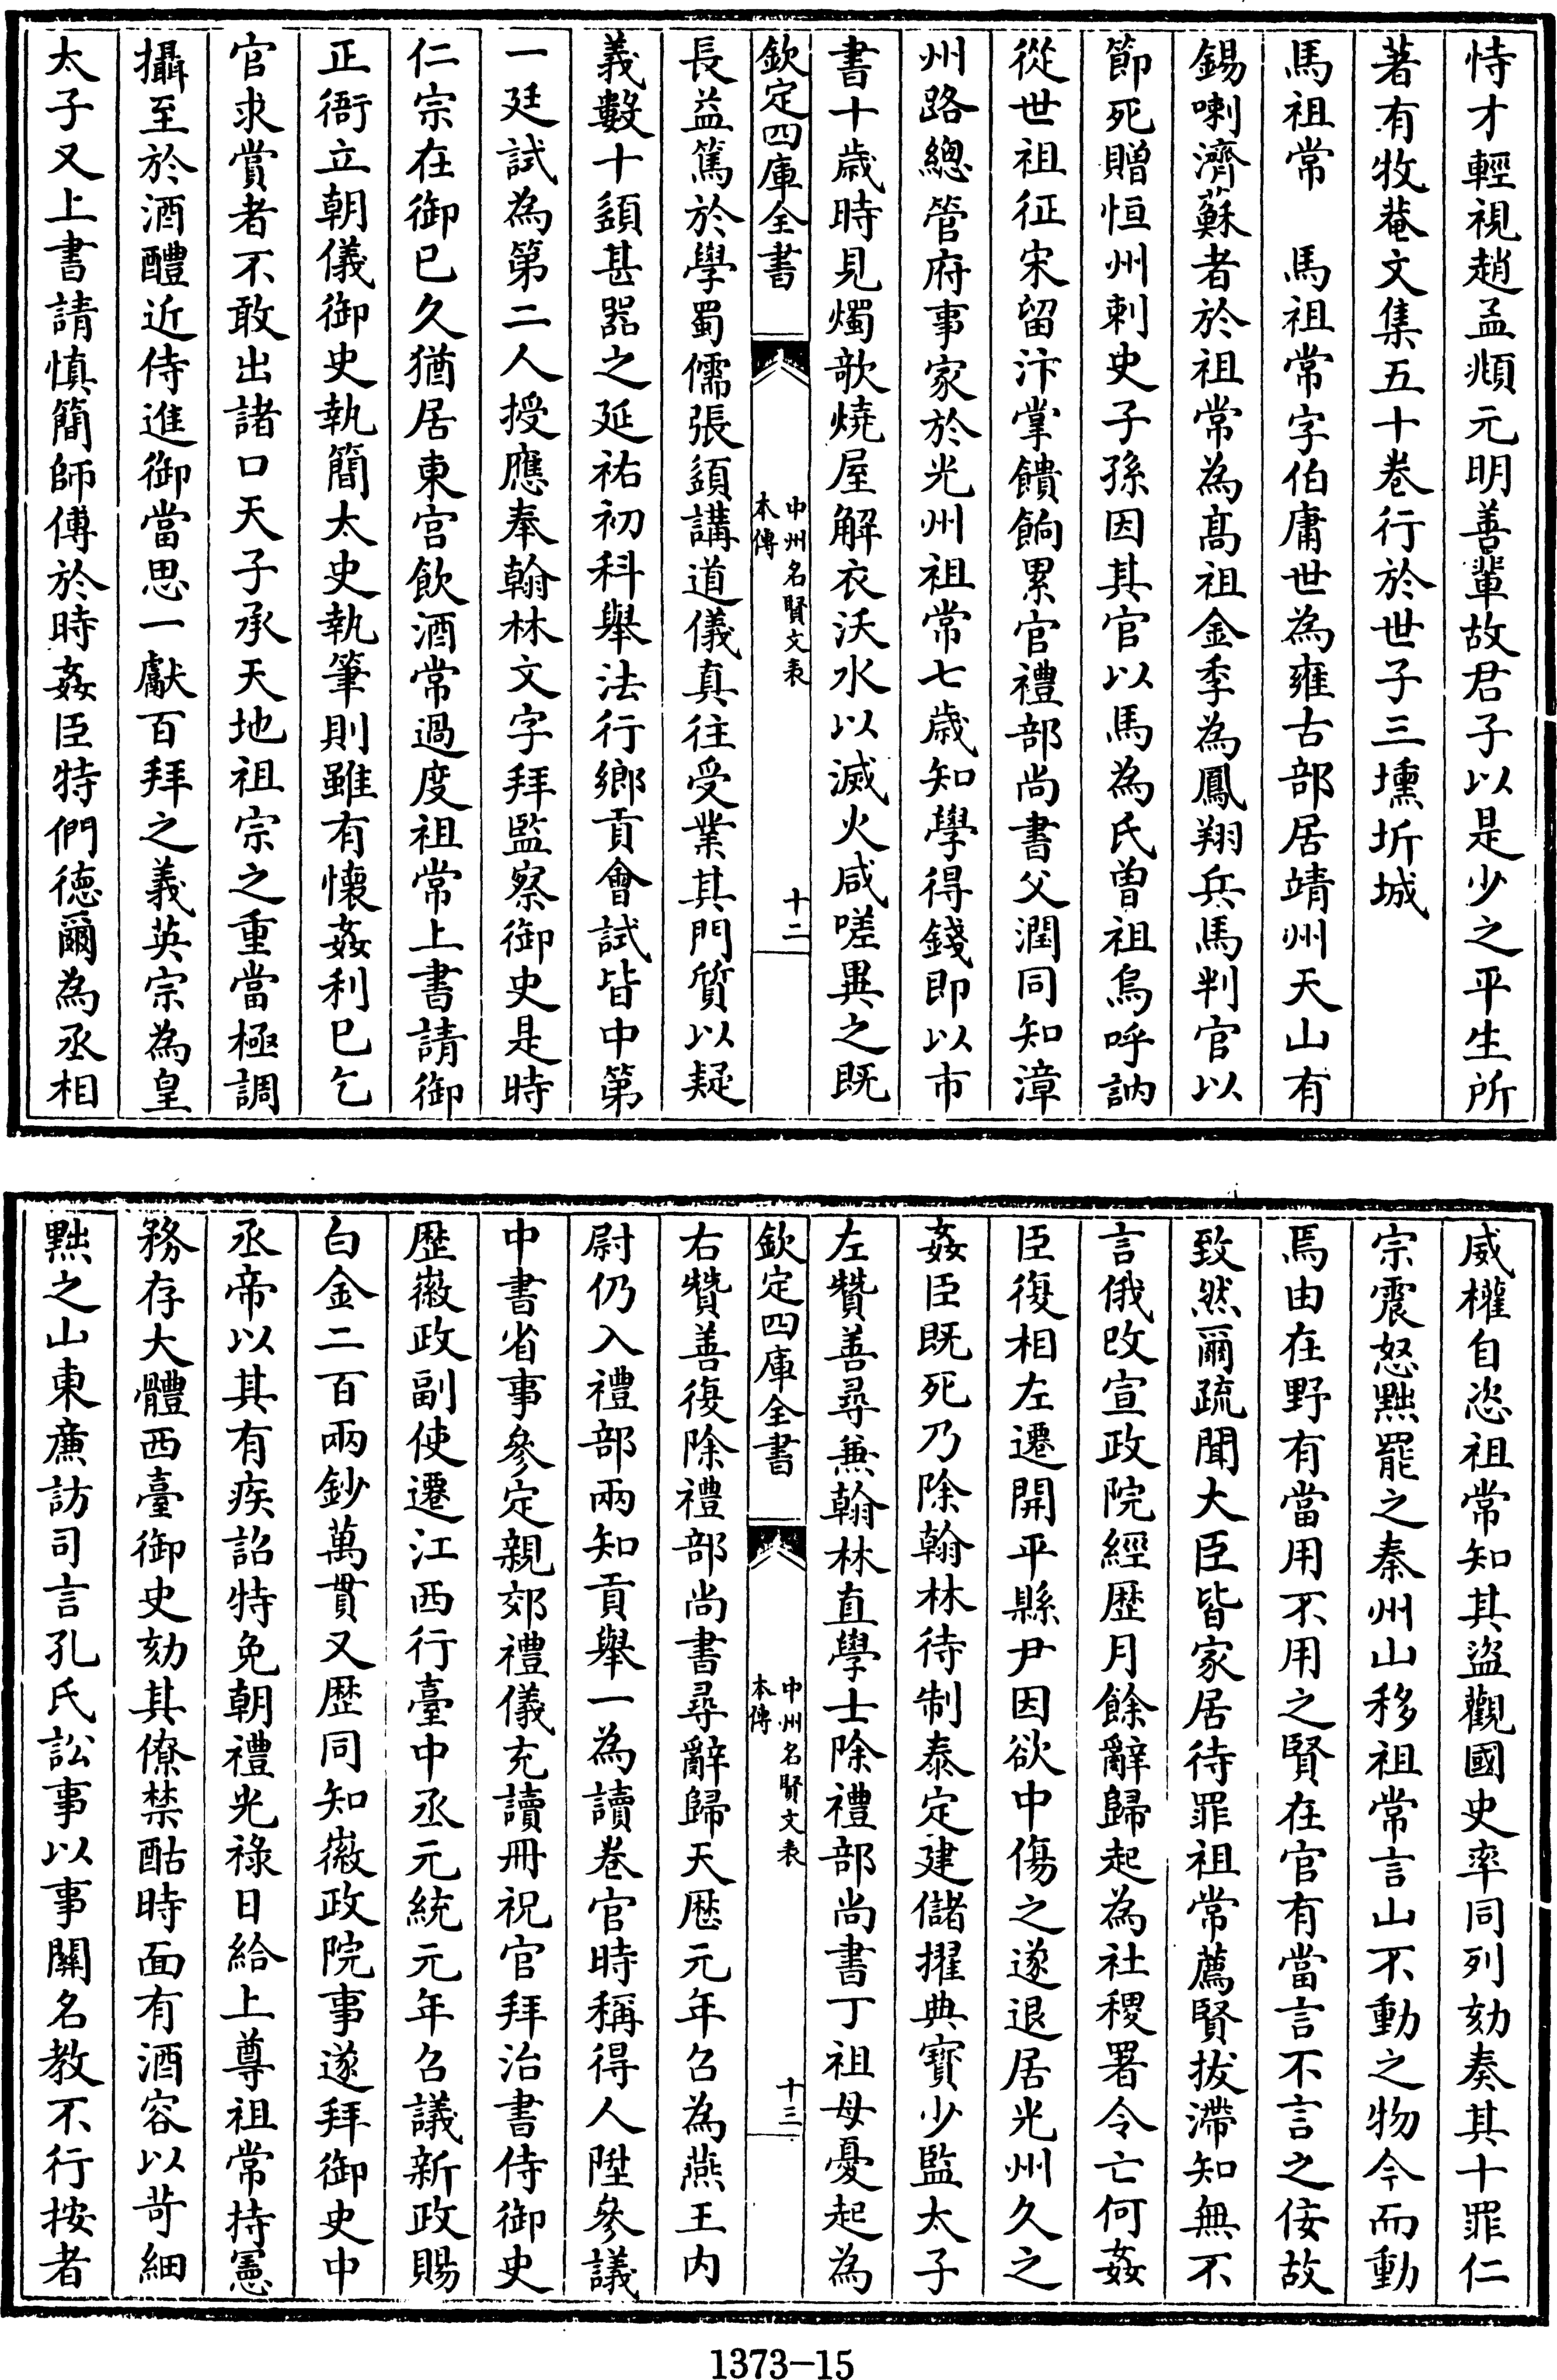 恃才輕視趙孟頫元明善輩故君子以是少之平生所
著有牧菴文集五十卷行於世子三壎圻城
馬祖常　馬祖常字伯庸世為雍古部居靖州天山有
錫喇濟蘇者於祖常為髙祖金季為鳳翔兵馬判官以
節死贈恒州刺史子孫因其官以馬為氏曾祖烏呼訥
從世祖征宋留汴掌饋餉累官禮部尚書父潤同知漳
州路總管府事家於光州祖常七歲知學得錢即以市
書十歲時見燭欹燒屋解衣沃水以滅火咸嗟異之既
欽定四庫全書
中州名賢文表
本傳
十二
長益篤於學蜀儒張𩔰講道儀真往受業其門質以疑
義數十𩔰甚器之延祐初科舉法行鄉貢會試皆中第
一廷試為第二人授應奉翰林文字拜監察御史是時
仁宗在御已久猶居東宫飲酒常過度祖常上書請御
正衙立朝儀御史執簡太史執筆則雖有懷姦利已乞
官求賞者不敢出諸口天子承天地祖宗之重當極調
攝至於酒醴近侍進御當思一獻百拜之義英宗為皇
太子又上書請慎簡師傅於時姦臣特們德爾為丞相
威權自恣祖常知其盜觀國史率同列劾奏其十罪仁
宗震怒黜罷之秦州山移祖常言山不動之物今而動
焉由在野有當用不用之賢在官有當言不言之佞故
致然爾疏聞大臣皆家居待罪祖常薦賢拔滯知無不
言俄改宣政院經歷月餘辭歸起為社稷署令亡何姦
臣復相左遷開平縣尹因欲中傷之遂退居光州久之
姦臣既死乃除翰林待制泰定建儲擢典寳少監太子
左贊善尋兼翰林直學士除禮部尚書丁祖母憂起為
欽定四庫全書
中州名賢文表
本傳
十三
右贊善復除禮部尚書尋辭歸天厯元年召為燕王内
尉仍入禮部兩知貢舉一為讀卷官時稱得人陞參議
中書省事參定親郊禮儀充讀冊祝官拜治書侍御史
歴徽政副使遷江西行臺中丞元統元年召議新政賜
白金二百兩鈔萬貫又歴同知徽政院事遂拜御史中
丞帝以其有疾詔特免朝禮光祿日給上尊祖常持憲
務存大體西臺御史劾其僚禁酤時面有酒容以苛細
黜之山東亷訪司言孔氏訟事以事關名教不行按者
1373—15